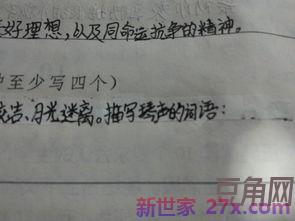 好理想,以及同命运抗争的精神。
至少写四个)
月光迷离。描写琴声的词语:
豆角网
新世家 27x.com